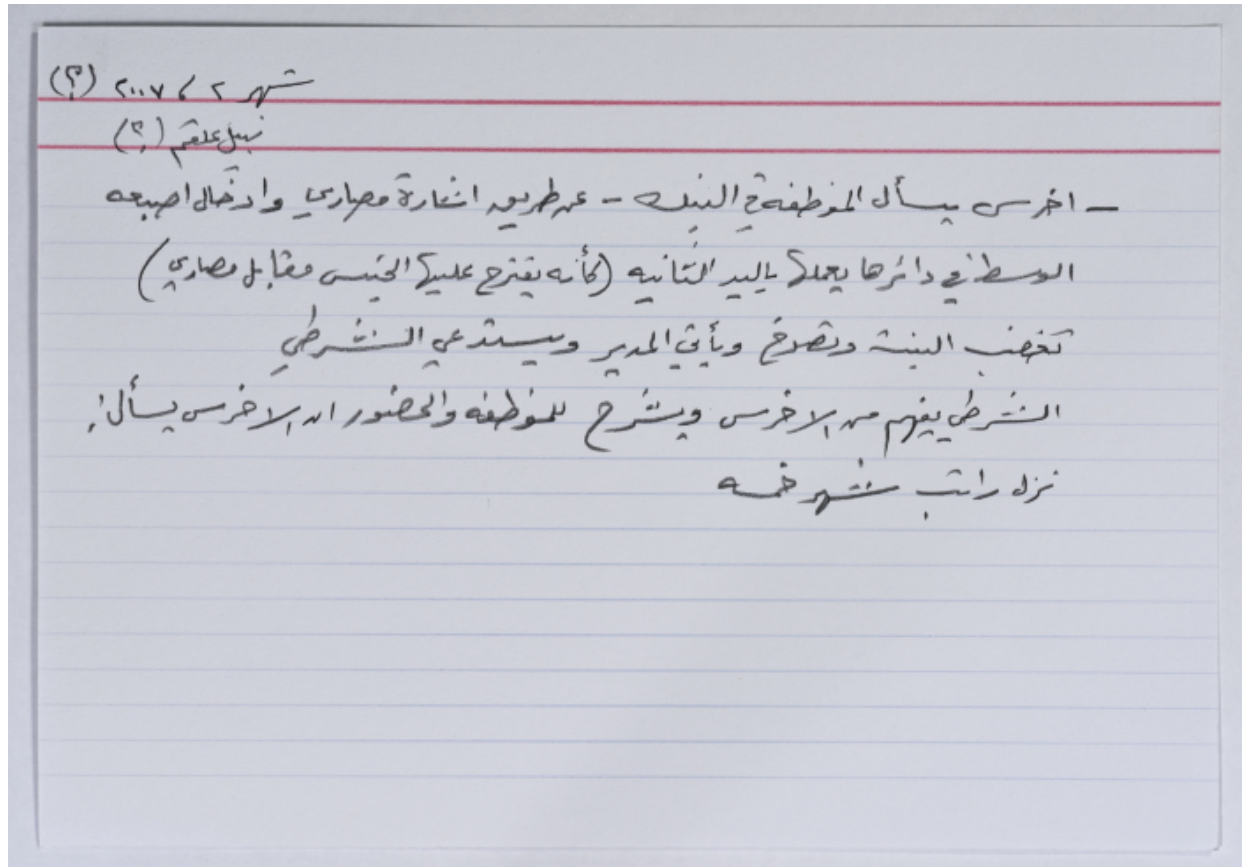 شهر ٢ / ٢٠٠٧ (؟)
نبيل علقم (؟)
- اخرس بيسأل الموظفة في البنك - عن طريق اشارة مصاري وادخال اصبعه
الوسط في دائرها يعملها باليد الثانيه (كأنه يقترح عليها الجنس مقابل مصاري)
تغضب البنت وتصرخ ويأتي المدير ويستدعي الشرطي
الشرطي يفهم من الاخرس ويشرح للموظفه والحضور ان الاخرس يسأل:
نزل راتب شهر خمسه